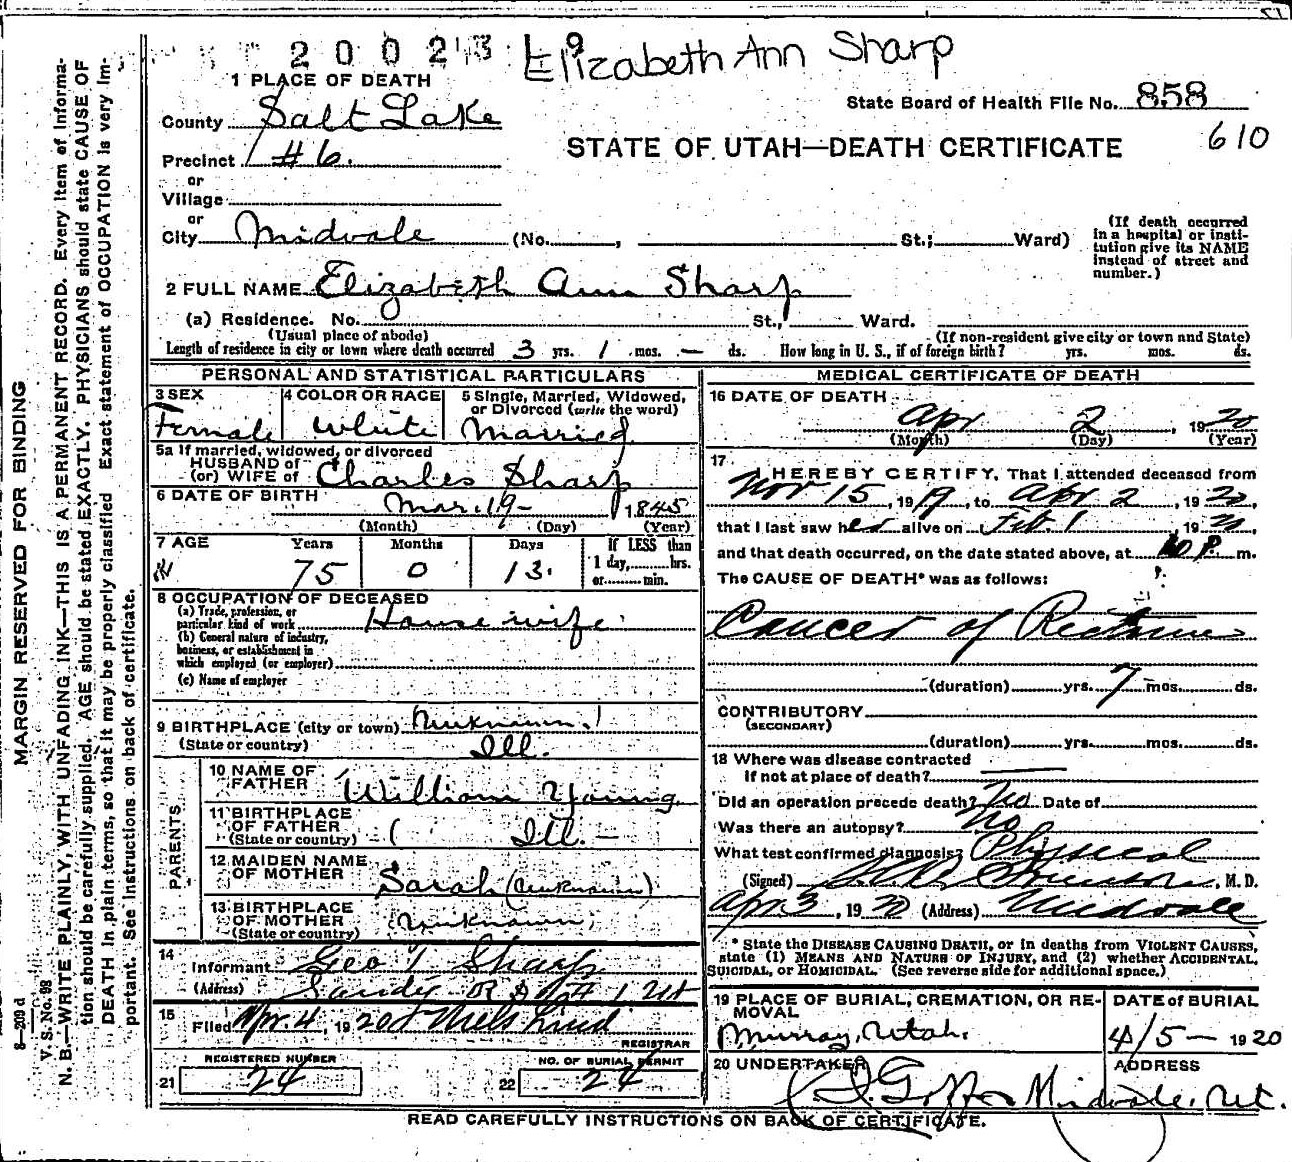 2 0 0 2 3 Elizabeth Ann Sharp
1 PLACE OF DEATH
State Board of Health File No. 858
610
County Salt Lake
Precinct #6.
STATE OF UTAH—DEATH CERTIFICATE
or
Village
or
City Midvale (No. , St.; Ward)
(If death occurred in a hospital or insti-
tution give its NAME
instead of street and
number.)
2 FULL NAME Elizabeth Ann Sharp
(a) Residence. No. St., Ward.
(Usual place of abode) (If non-resident give city or town and State)
Length of residence in city or town where death occurred 3 yrs. 1 mos. — ds. How long in U. S., if of foreign birth? yrs. mos. ds.
PERSONAL AND STATISTICAL PARTICULARS
3 SEX
Female
4 COLOR OR RACE
White
5 Single, Married, Widowed,
or Divorced (write the word)
Married
5a If married, widowed, or divorced
HUSBAND of
(or) WIFE of Charles Sharp
6 DATE OF BIRTH
Mar. 19 - 1845
(Month) (Day) (Year)
7 AGE Years Months Days
75 0 13.
If LESS than
1 day, hrs.
or min.
8 OCCUPATION OF DECEASED
(a) Trade, profession, or
particular kind of work Housewife
(b) General nature of industry,
business, or establishment in
which employed (or employer)
(c) Name of employer
9 BIRTHPLACE (city or town) (unknown.)
(State or country) Ill.
PARENTS
10 NAME OF
FATHER William Young
11 BIRTHPLACE
OF FATHER
(State or country) ( Ill. —
12 MAIDEN NAME
OF MOTHER Sarah (unknown)
13 BIRTHPLACE
OF MOTHER
(State or country) (unknown)
14
Informant Geo T Sharp
(Address) Sandy R D # 1 Ut
15
Filed Apr. 4, 1920 Nels Lind
REGISTRAR
REGISTERED NUMBER
21 24
NO. OF BURIAL PERMIT
22 24
MEDICAL CERTIFICATE OF DEATH
16 DATE OF DEATH
Apr 2, 1920
(Month) (Day) (Year)
17
I HEREBY CERTIFY, That I attended deceased from
Nov 15, 1919, to Apr 2, 1920,
that I last saw her alive on Feb 1 1920
and that death occurred, on the date stated above, at 10 P. m.
The CAUSE OF DEATH* was as follows:
Cancer of Rectum
(duration) yrs. 7 mos. ds.
CONTRIBUTORY
(SECONDARY)
(duration) yrs. mos. ds.
18 Where was disease contracted
if not at place of death?
Did an operation precede death? No Date of
Was there an autopsy? No
What test confirmed diagnosis? Physical
(Signed) , M. D.
Apr 3, 1920 (Address) Midvale
* State the DISEASE CAUSING DEATH, or in deaths from VIOLENT CAUSES,
state (1) MEANS AND NATURE OF INJURY, and (2) whether ACCIDENTAL,
SUICIDAL, or HOMICIDAL. (See reverse side for additional space.)
19 PLACE OF BURIAL, CREMATION, OR RE-
MOVAL
Murray, Utah.
DATE of BURIAL
4/5 — 1920
20 UNDERTAKER
ADDRESS
Midvale, Ut.
READ CAREFULLY INSTRUCTIONS ON BACK OF CERTIFICATE.
MARGIN RESERVED FOR BINDING
8—209 d
V. S. No. 98
N. B.—WRITE PLAINLY, WITH UNFADING INK—THIS IS A PERMANENT RECORD. Every item of informa-
tion should be carefully supplied. AGE should be stated EXACTLY. PHYSICIANS should state CAUSE OF
DEATH in plain terms, so that it may be properly classified. Exact statement of OCCUPATION is very im-
portant. See instructions on back of certificate.